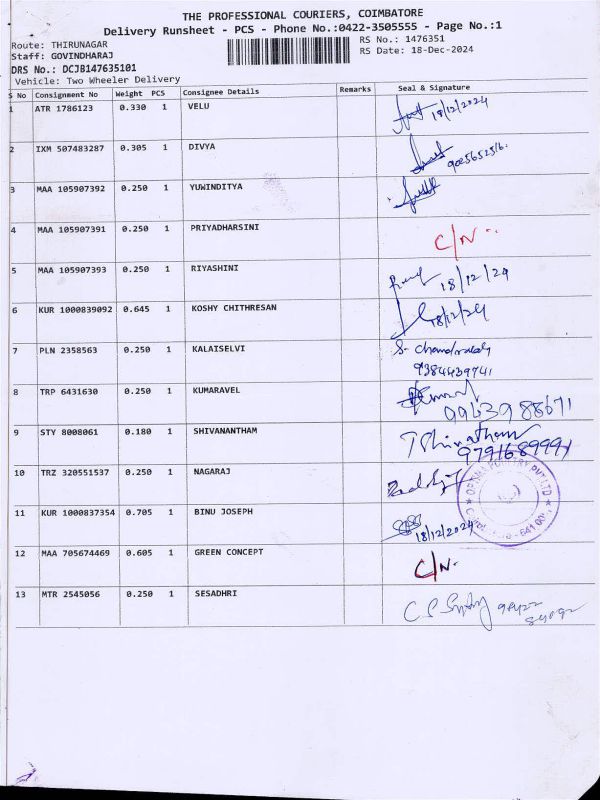 THE PROFESSIONAL COURIERS, COIMBATORE
Delivery Runsheet - PCS - Phone No.:0422-3505555 - Page No.:1
Route: THIRUNAGAR
RS No.: 1476351
Staff: GOVINDHARAJ
RS Date: 18-Dec-2024
DRS No.: DCJB147635101
Vehicle: Two Wheeler Delivery
S No Consignment No Weight PCS Consignee Details Remarks Seal & Signature
1 ATR 1786123 0.330 1 VELU 18/12/2024
2 IXM 507483287 0.305 1 DIVYA
3 MAA 105907392 0.250 1 YUWINDITYA
4 MAA 105907391 0.250 1 PRIYADHARSINI C/N
5 MAA 105907393 0.250 1 RIYASHINI 18/12/24
6 KUR 1000839092 0.645 1 KOSHY CHITHRESAN 18/12/24
7 PLN 2358563 0.250 1 KALAISELVI S.
9384439941
8 TRP 6431630 0.250 1 KUMARAVEL
9963988671
9 STY 8008061 0.180 1 SHIVANANTHAM
9791689991
10 TRZ 320551537 0.250 1 NAGARAJ
11 KUR 1000837354 0.705 1 BINU JOSEPH 18/12/2024
12 MAA 705674469 0.605 1 GREEN CONCEPT C/N.
13 MTR 2545056 0.250 1 SESADHRI